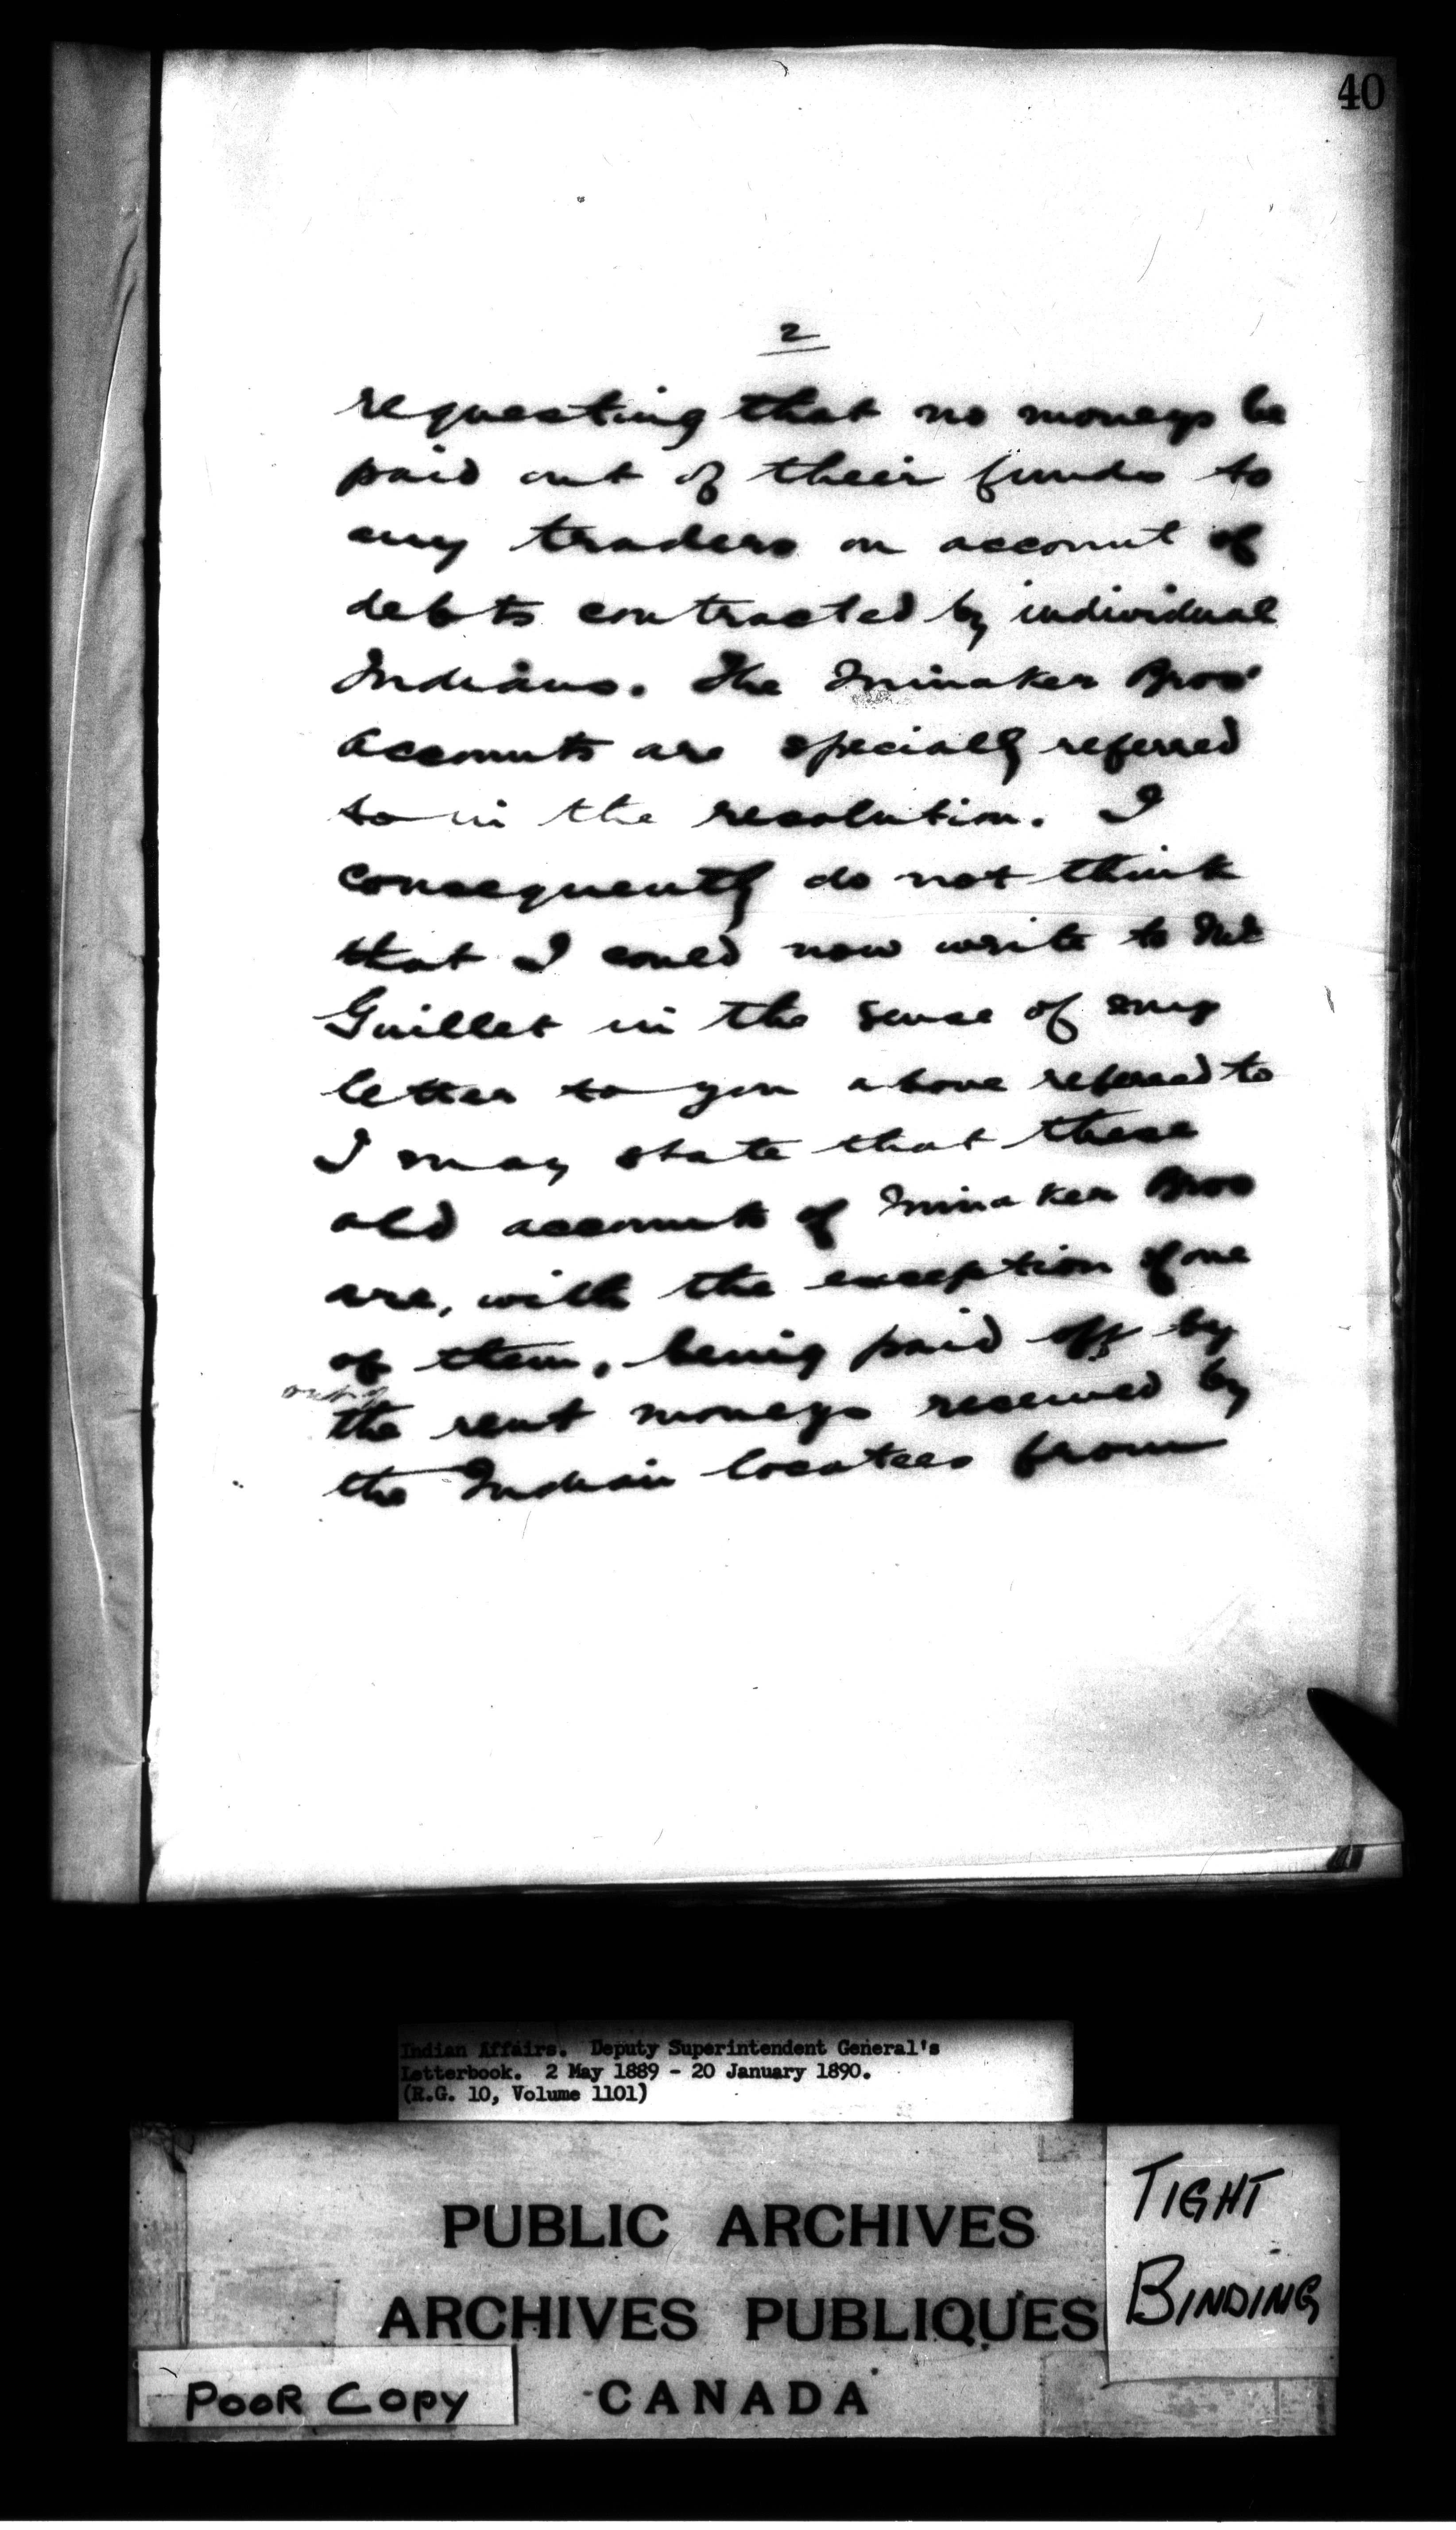 40
2
requesting that no moneys be
paid out of their funds to
any traders on account of
debts contracted by individual
Indians. The Minaker Bros'
accounts are specially referred
to in the resolution. I
consequently do not think
that I could now write to Mr
Guillet in the sense of my
letter to you above referred to
I may state that these
old accounts of Minaker Bros
are, with the exception of one
of them, being paid off by
out of
the rent moneys received by
the Indian locatees from
Indian Affairs. Deputy Superintendent General's
Letterbook. 2 May 1889 - 20 January 1890.
(R.G. 10, Volume 1101)
PUBLIC ARCHIVES
ARCHIVES PUBLIQUES
CANADA
TIGHT
BINDING
POOR COPY